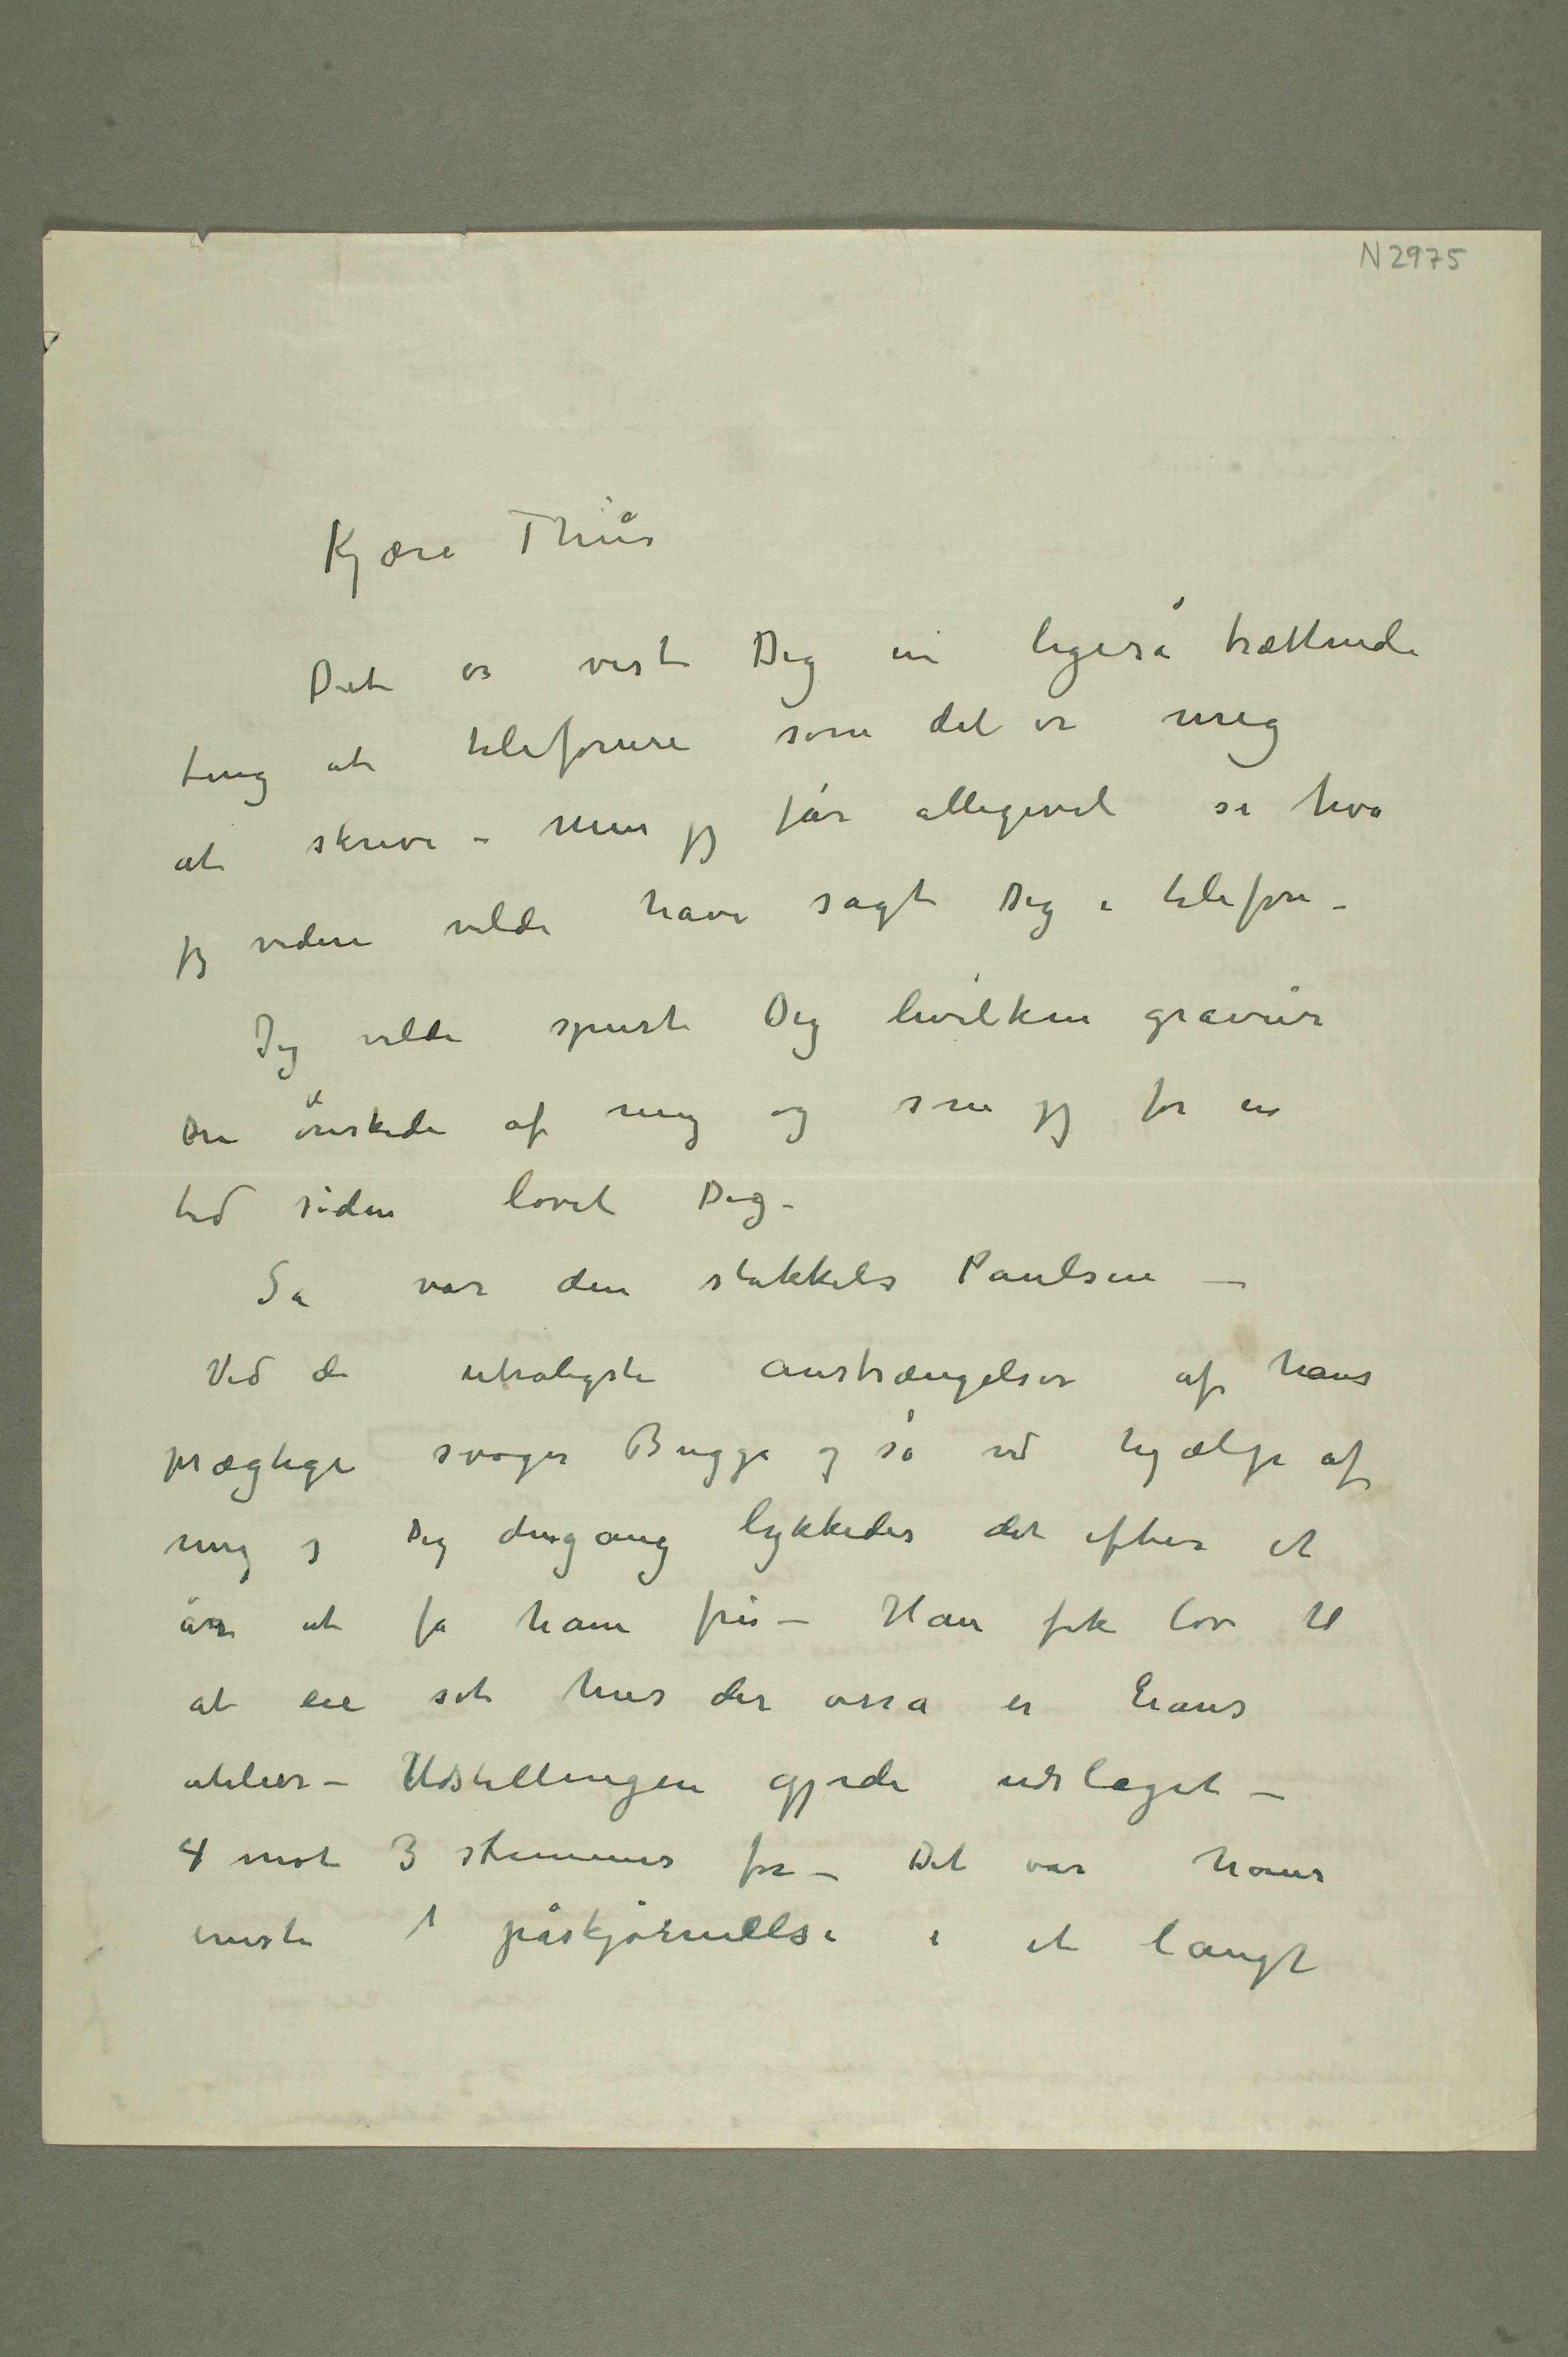 N 2975
Kjære Thiis
Det er vist Dig en ligeså trættende
ting at telefonere som det er mig
at skrive – Men jeg får alligevel se hva
jeg videre vilde have sagt Dig i telefon –
Jeg vilde spurt Dig hvilken gravür
Du ønskede af mig og som jeg for en
tid siden lovet Dig –
Så var den stakkels Paulsen –
Ved de utroligste anstrængelser af hans
prægtige svoger Bugge og så ved hjælp af
mig og Dig dengang lykkedes det efter et
år at få ham fri – Han fik lov til
at eie sit hus der osså er hans
atelier – Udstillingen gjorde udslaget –
4 mot 3 stemmer for – Det var hans
eneste 1 påskjønnelse i et langt